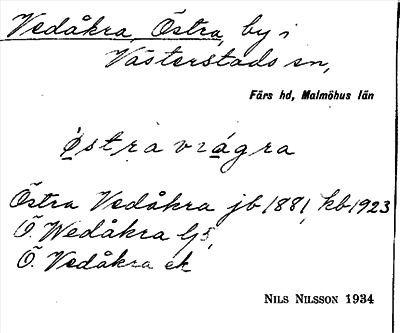 Vedåkra, Östra, by i
Västerstads sn,
Färs hd, Malmöhus län
östra vrågra
Östra Vedåkra jb 1881, kb 1923
Ö. Wedåkra
Ö. Vedåkra ek
NILS NILSSON 1934